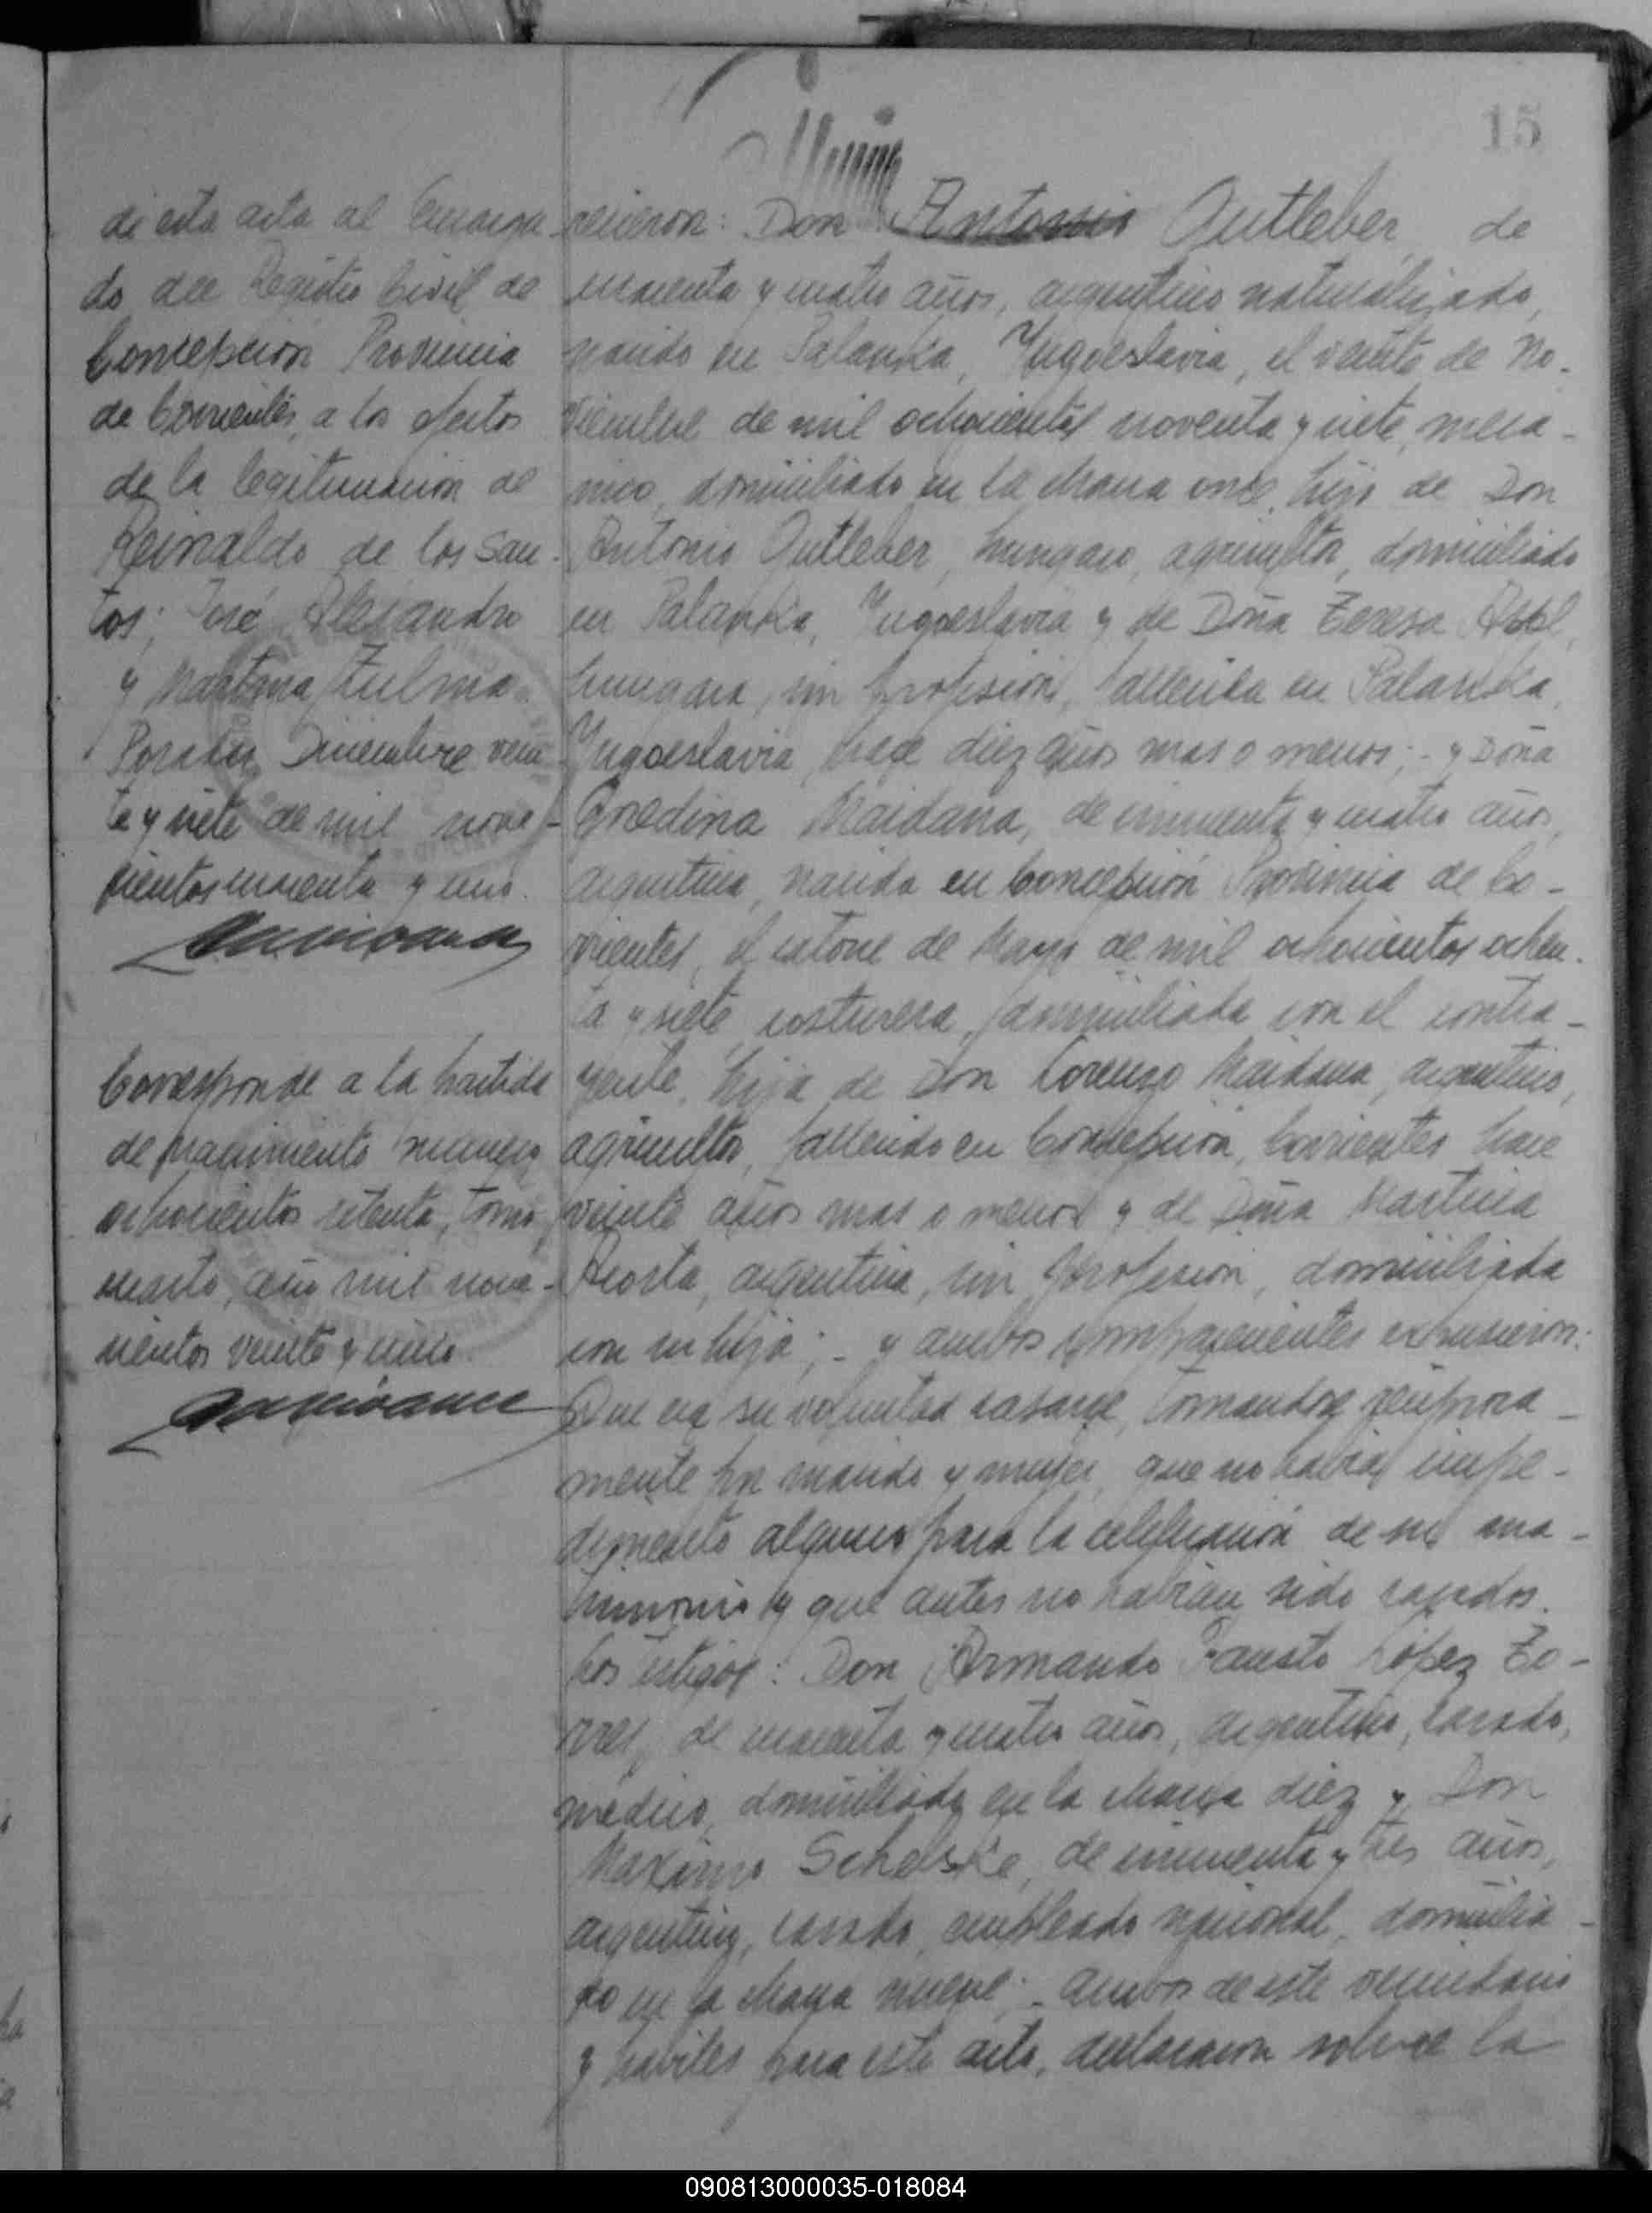 15
de esta acta al Encarga-
do del Registro Civil de
Concepción Provincia
de Corrientes, a los efectos
de la legitimación de
Reinaldo de los San-
tos; José Alejandro
y Martina Zulma.
Posadas Diciembre vein-
te y siete de mil nove-
cientos cuarenta y uno.
Corresponde a la partida
de nacimiento número
ochocientos setenta, tomo
cuarto, año mil nove-
cientos veinte y cinco.
recieron: Don Antonio Gutleber, de
cuarenta y cuatro años, argentino naturalizado,
nacido en Palanka, Yugoeslavia, el veinte de No-
viembre de mil ochocientos noventa y siete, mecá-
nico, domiciliado en la chacra once, hijo de Don
Antonio Gutleber, hungaro, agricultor, domiciliado
en Palanka, Yugoeslavia y de Doña Teresa
hungara, sin profesión, fallecida en Palanka,
Yugoeslavia, hace diez años mas o menos; - y Doña
Gredina Maidana, de cincuenta y cuatro años,
argentina, nacida en Concepción Provincia de Co-
rrientes, el catorce de Mayo de mil ochocientos ochen-
ta y siete, costurera, domiciliada con el contra-
yente, hija de Don Lorenzo Maidana, argentino,
agricultor, fallecido en Concepción, Corrientes hace
veinte años mas o menos y de Doña Martina
Acosta, argentina, sin profesión, domiciliada
con su hija; - y ambos comparecientes expusieron:
Que era su voluntad casarse, tomandose reciproca-
mente por marido y mujer, que no habia impe-
dimento alguno para la celebración de su ma-
trimonio y que antes no habian sido casados.
Los testigos: Don Armando Fausto López To-
rres, de cuarenta y cuatro años, argentino, casado,
médico, domiciliado en la chacra diez y Don
Maximo Schelske, de cincuenta y tres años,
argentino, casado, empleado nacional, domicilia-
do en la chacra nueve; - ambos de este vecindario
y habiles para este acto, declararon sobre la
090813000035-018084